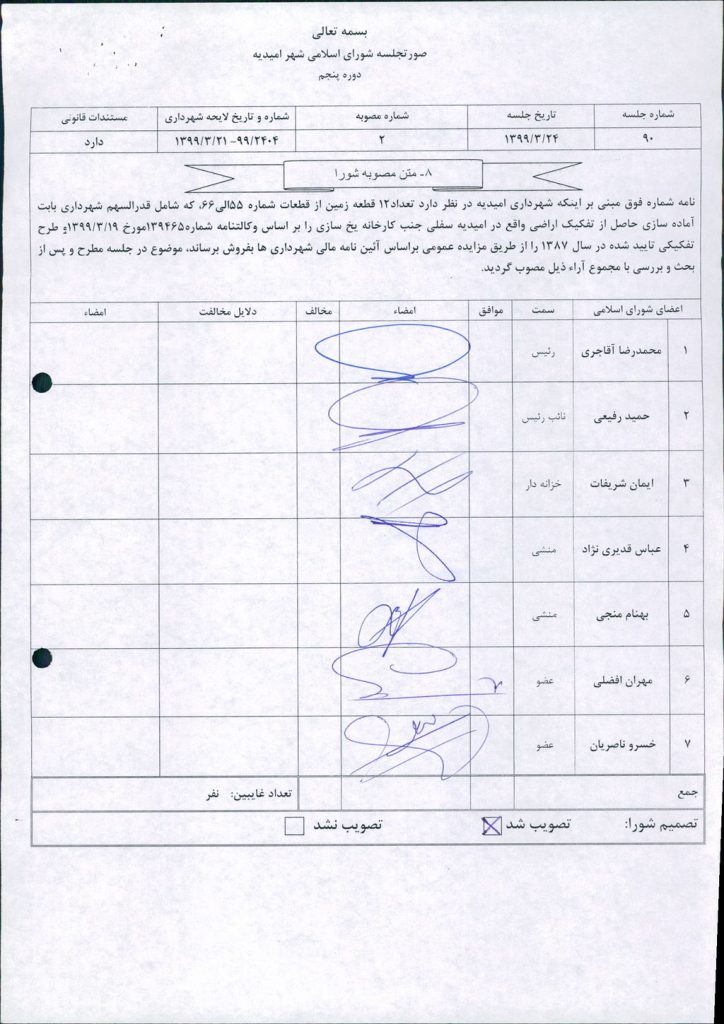 بسمه تعالی
صورتجلسه شورای اسلامی شهر امیدیه
دوره پنجم
شماره جلسه تاریخ جلسه شماره مصوبه شماره و تاریخ لایحه شهرداری مستندات قانونی
۹۰ ۱۳۹۹/۳/۲۴ ۲ ۹۹/۲۴۰۴-۱۳۹۹/۳/۲۱ دارد
۸- متن مصوبه شورا
نامه شماره فوق مبنی بر اینکه شهرداری امیدیه در نظر دارد تعداد۱۲ قطعه زمین از قطعات شماره ۵۵الی۶۶، که شامل قدرالسهم شهرداری بابت
آماده سازی حاصل از تفکیک اراضی واقع در امیدیه سفلی جنب کارخانه یخ سازی را بر اساس وکالتنامه شماره۱۳۹۴۶۵مورخ ۱۳۹۹/۳/۱۹و طرح
تفکیکی تایید شده در سال ۱۳۸۷ را از طریق مزایده عمومی براساس آئین نامه مالی شهرداری ها بفروش برساند، موضوع در جلسه مطرح و پس از
بحث و بررسی با مجموع آراء ذیل مصوب گردید.
اعضای شورای اسلامی سمت موافق امضاء مخالف دلایل مخالفت امضاء
۱ محمدرضا آقاجری رئیس
۲ حمید رفیعی نائب رئیس
۳ ایمان شریفات خزانه دار
۴ عباس قدیری نژاد منشی
۵ بهنام منجی منشی
۶ مهران افضلی عضو
۷ خسرو ناصریان عضو
جمع تعداد غایبین: نفر
تصمیم شورا: تصویب شد تصویب نشد